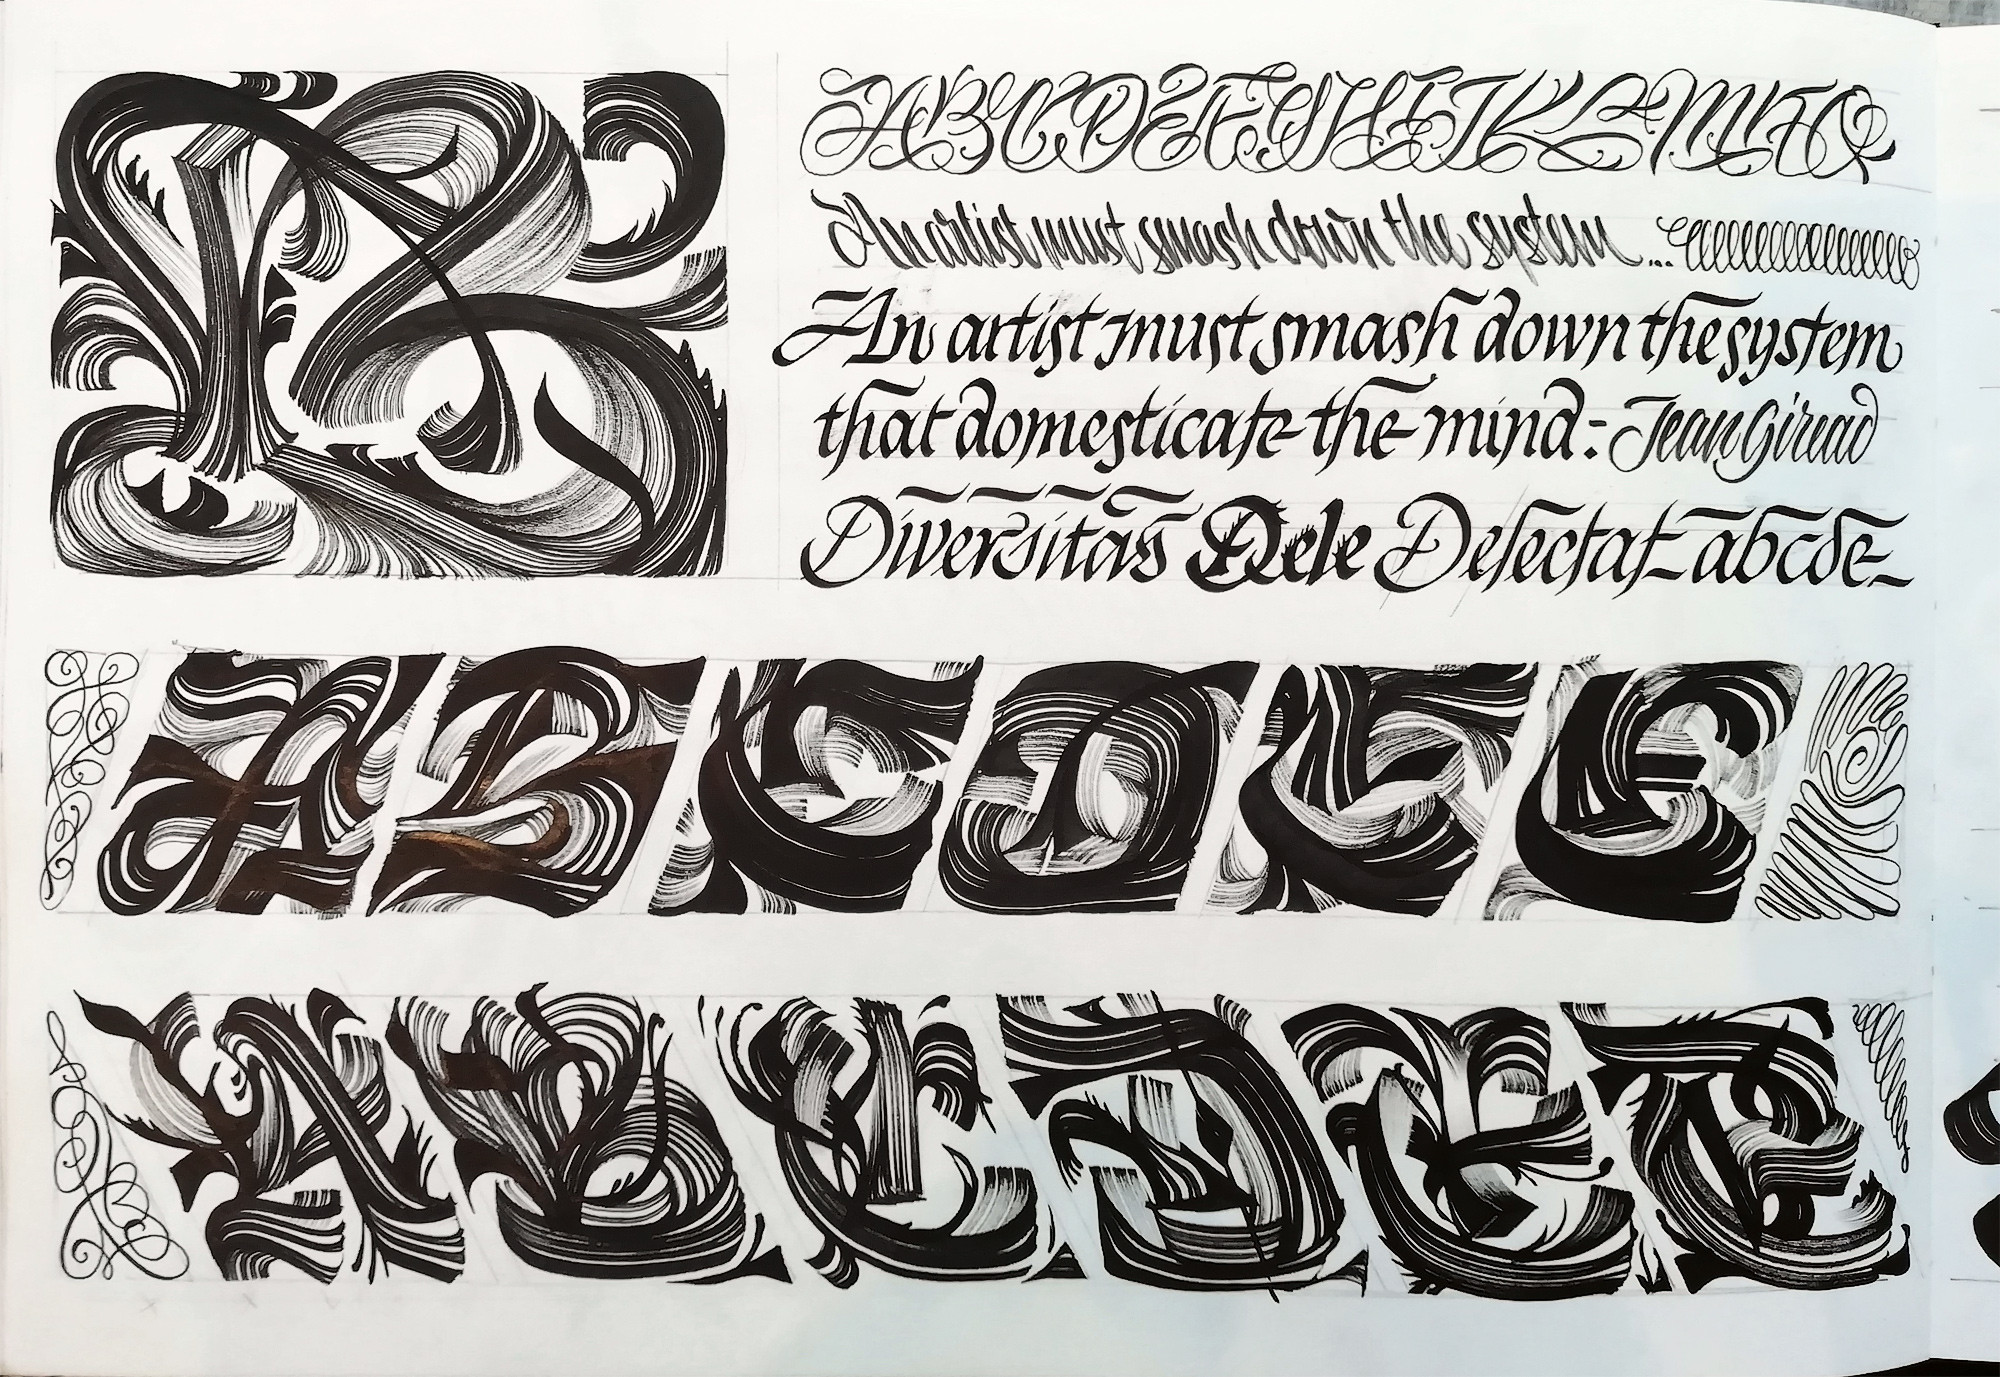 R
ABCDEFGHIJKLM
An artist must smash down the system ...
An artist must smash down the system
that domesticate the mind :- Jean Giread
Diversitas Dele Delectat abcde
ABCDEF
ABCDEF